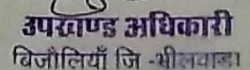 उपखण्ड अधिकारी
बिजौलियाँ जि -भीलवाड़ा